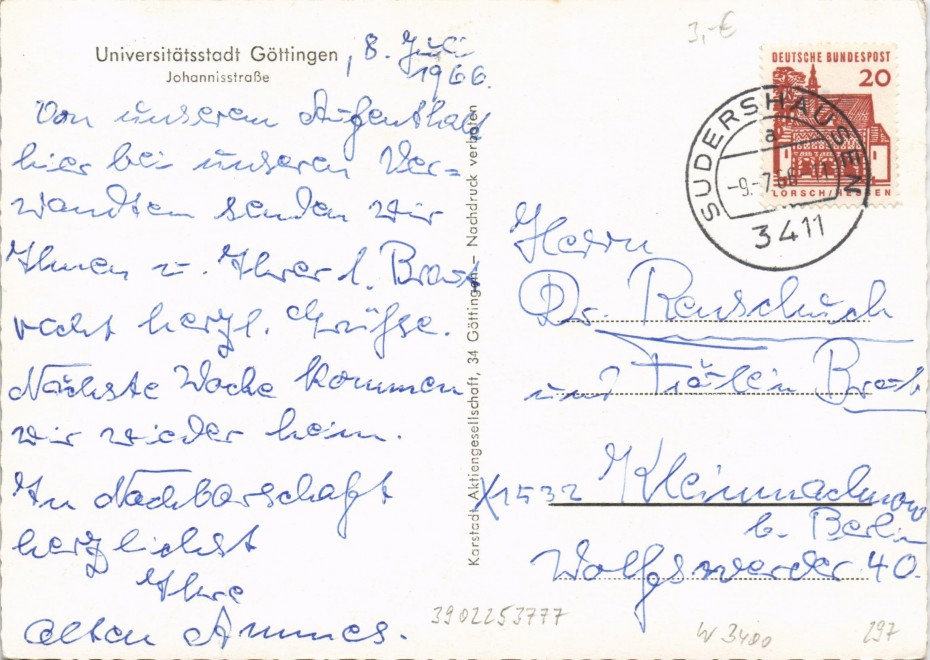 Universitätsstadt Göttingen
Johannisstraße
, 8. Juli
1966.
Von unserem Aufenthalt
hier bei unseren Ver=
wandten senden wir
Ihnen u. Ihrer l. Braut
recht herzl. Grüße.
Nächste Woche kommen
wir wieder heim.
In Nachbarschaft
herzlichst
Ihre
alten
Karstadt Aktiengesellschaft, 34 Göttingen – Nachdruck verboten
3,-€
DEUTSCHE BUNDESPOST
20
LORSCH/HESSEN
SUDERSHAUSEN
a
-9.-7.66-11
3411
Herrn
Dr. Renschuch
und Fräulein
X1532 Kleinmachnow
b. Berlin
Wolfswerder 40.
3902253777
W3400
297